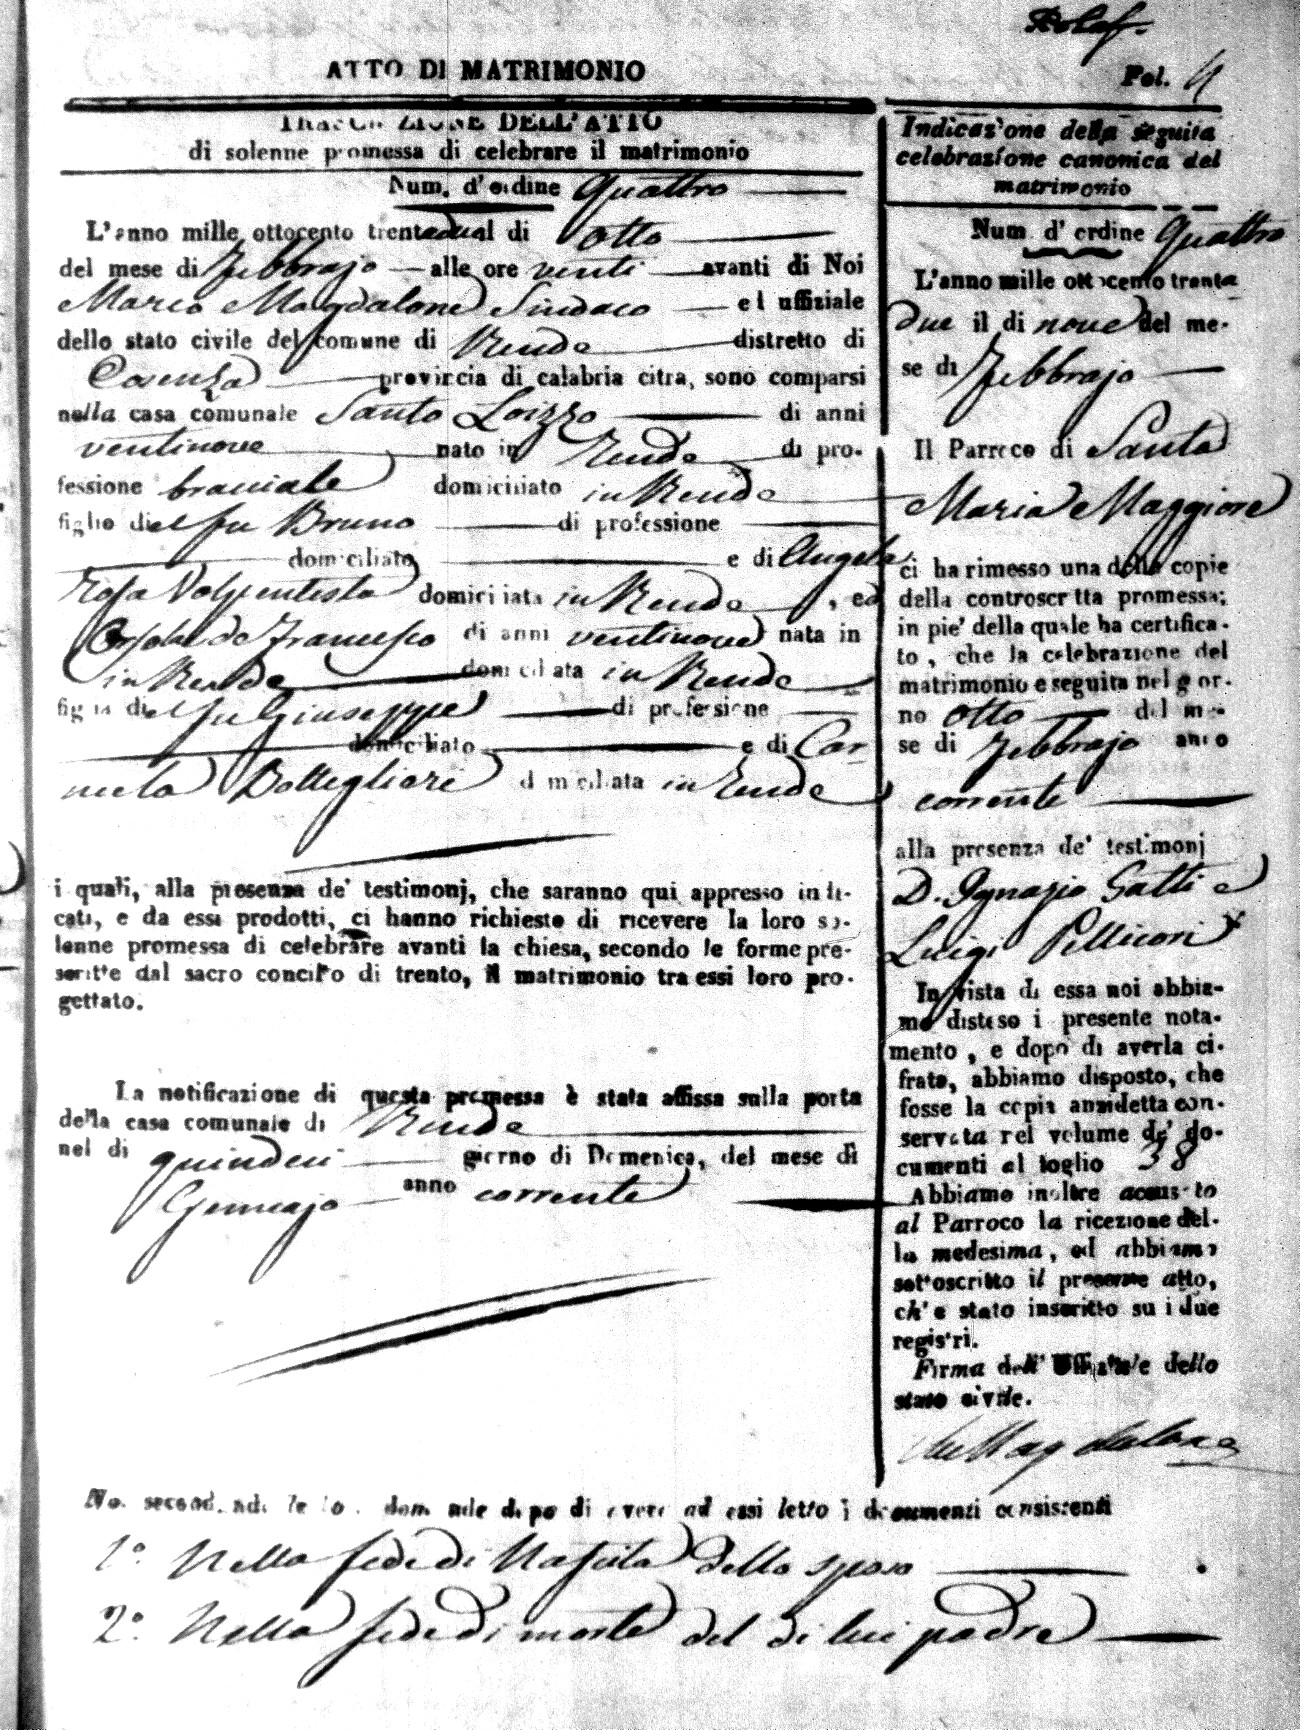 ATTO DI MATRIMONIO
Fol. 4
TRASCRIZIONE DELL'ATTO
di solenne promessa di celebrare il matrimonio
Num. d'ordine Quattro
L'anno mille ottocento trentadue il di otto
del mese di Febbrajo alle ore venti avanti di Noi
Marco Magdalone Sindaco ed uffiziale
dello stato civile del comune di Rende distretto di
Cosenza provincia di calabria citra, sono comparsi
nella casa comunale Santo Loizzo di anni
ventinove nato in Rende di pro-
fessione bracciale domiciliato in Rende
figlio del fu Bruno di professione
domiciliato e di Angela
Rosa Volpentesta domiciliata in Rende, ed
Orsola de Francesco di anni ventinove nata in
in Rende domiciliata in Rende
figlia del fu Giuseppe di professione
domiciliato e di Car
mela Bottegliari domiciliata in Rende
i quali, alla presenza de' testimonj, che saranno qui appresso indi-
cati, e da essi prodotti, ci hanno richiesto di ricevere la loro so-
lenne promessa di celebrare avanti la chiesa, secondo le forme pre-
scritte dal sacro concilio di trento, il matrimonio tra essi loro pro-
gettato.
La notificazione di questa promessa è stata affissa sulla porta
della casa comunale di Rende
nel di quindeci giorno di Domenica, del mese di
Gennajo anno corrente
Indicazione della seguita
celebrazione canonica del
matrimonio
Num. d' ordine Quattro
L'anno mille ottocento trenta
due il di nove del me-
se di Febbrajo
Il Parroco di Santa
Maria Maggiore
ci ha rimesso una delle copie
della controscritta promessa;
in pie' della quale ha certifica-
to, che la celebrazione del
matrimonio e seguita nel gior-
no otto del me-
se di Febbrajo anno
corrente
alla presenza de' testimonj
D. Ignazio Gatti e
Luigi Pellicori
In vista di essa noi abbia-
mo disteso i presente nota-
mento, e dopo di averla ci-
frata, abbiamo disposto, che
fosse la copia anzidetta con-
servata nel volume de' do-
cumenti al foglio 38
Abbiamo inoltre accusato
al Parroco la ricezione del-
la medesima, ed abbiamo
sottoscritto il presente atto,
ch'e stato inscritto su i due
registri.
Firma dell' Uffiziale dello
stato civile.
Magdalone
Noi secondando le loro domande dopo di avere ad essi letto i documenti consistenti
1° Nella fede di Nascita dello sposo
2° Nella fede di morte del di lui padre